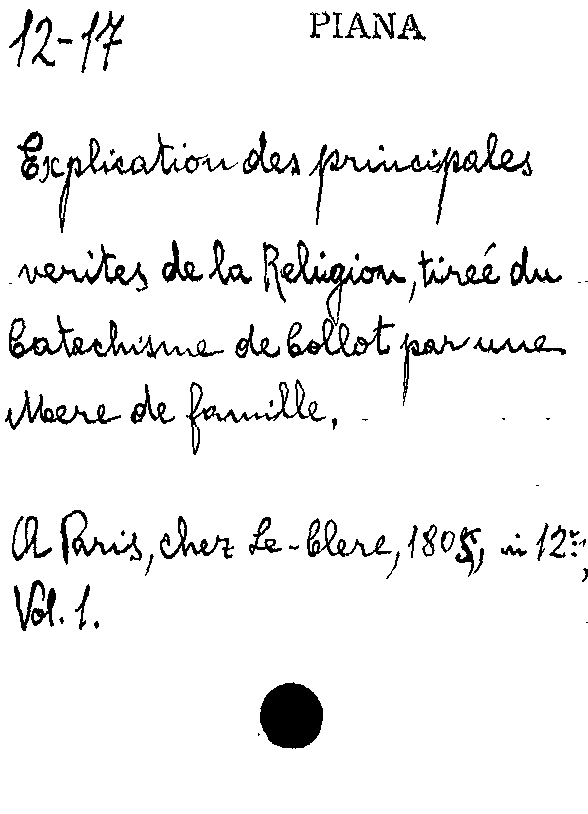 12-17 PIANA
Explication des principales
verites de la Religion, tireé du
Catechisme de Collot par une
Mere de famille.
A Paris, chez Le-Clere, 1805, in 12º:,
Vol. 1.